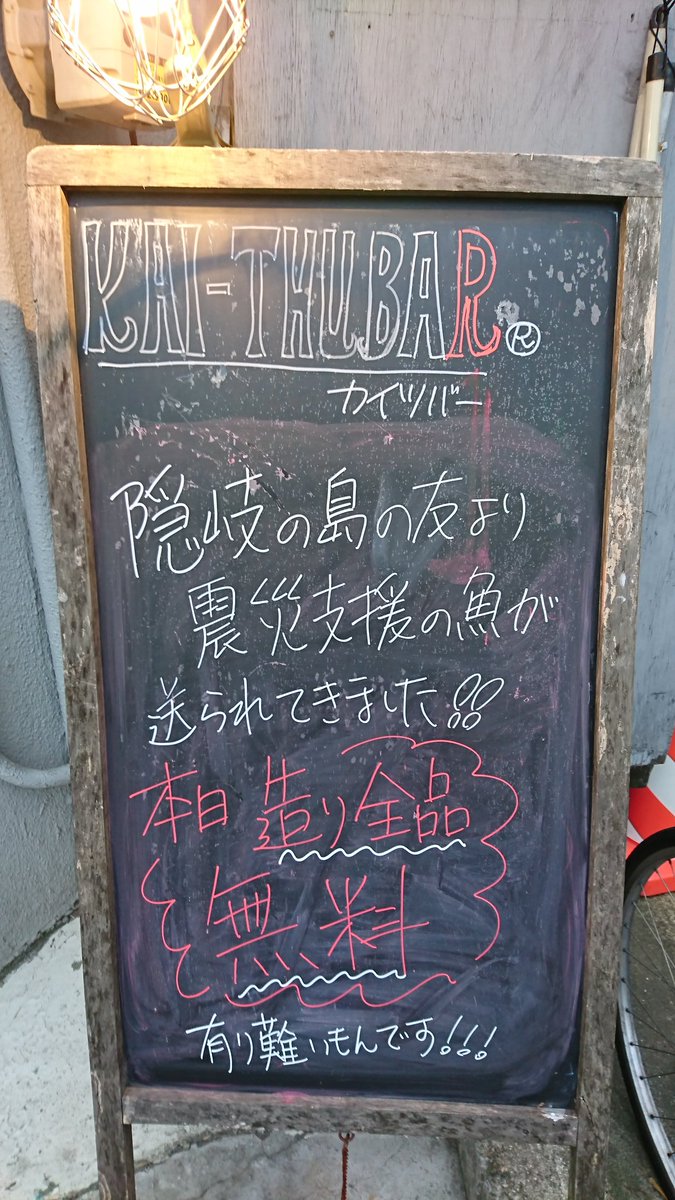 KAI-THUBAR®
カイツバー
隠岐の島の友より
震災支援の魚が
送られてきました!!
本日 造り全品
無料
有り難いもんです!!!